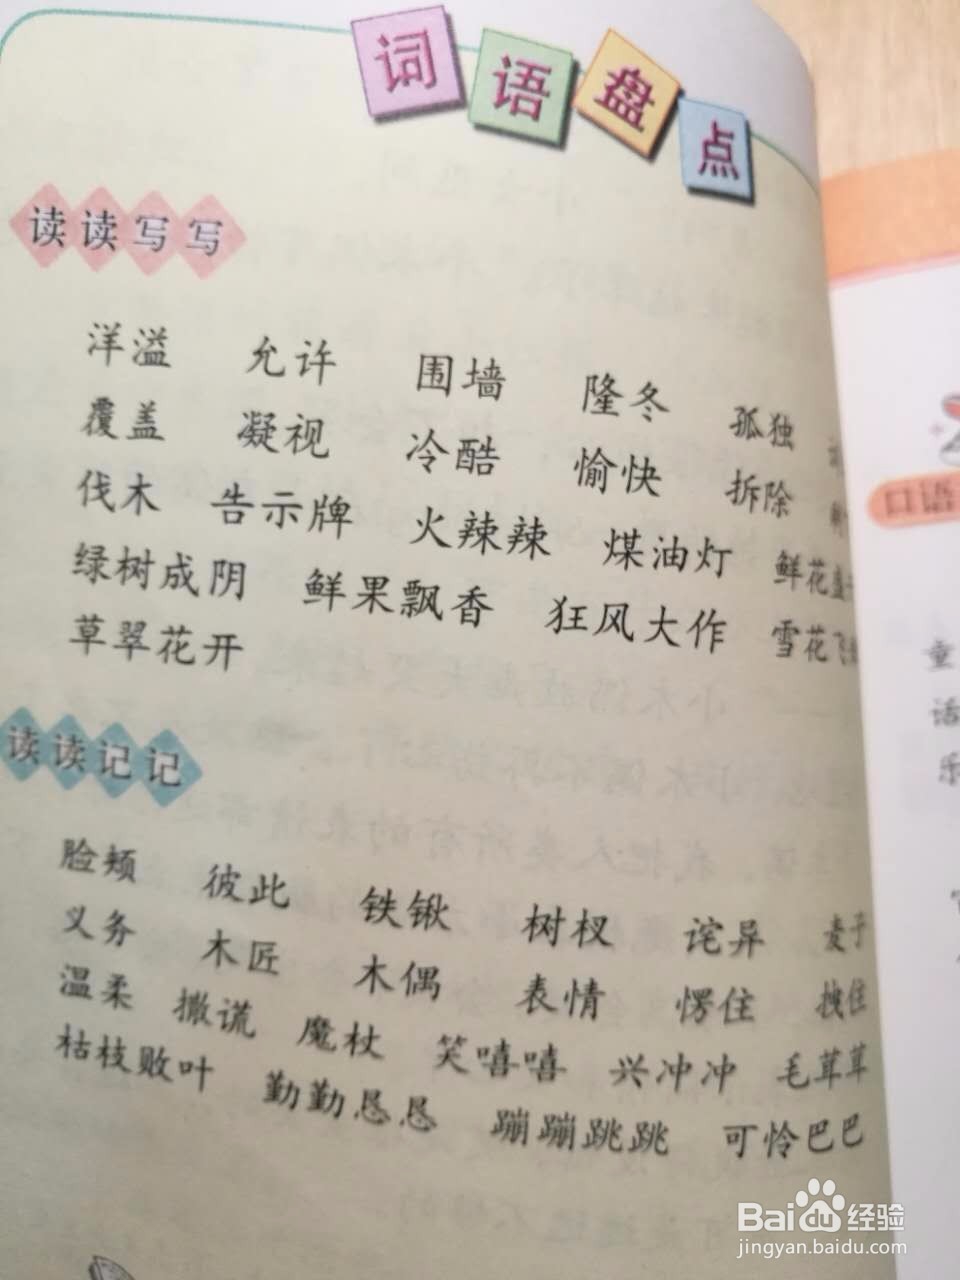 词语盘点
读读写写
洋溢 允许 围墙 隆冬 孤独
覆盖 凝视 冷酷 愉快 拆除
伐木 告示牌 火辣辣 煤油灯 鲜花盛
绿树成阴 鲜果飘香 狂风大作 雪花飞
草翠花开
读读记记
脸颊 彼此 铁锹 树杈 诧异 麦子
义务 木匠 木偶 表情 愣住 拽住
温柔 撒谎 魔杖 笑嘻嘻 兴冲冲 毛茸茸
枯枝败叶 勤勤恳恳 蹦蹦跳跳 可怜巴巴
口语
童
话
乐
Baidu经验
jingyan.baidu.com